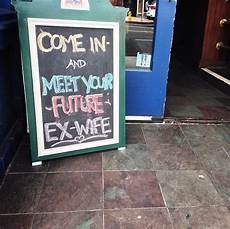 COME IN
AND
MEET YOUR
FUTURE
EX-WIFE